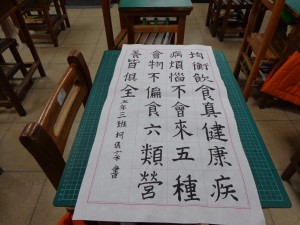 均衡飲食真健康疾
病煩惱不會來五種
會物不偏食六類營
養皆俱全 五年三班 柯 書